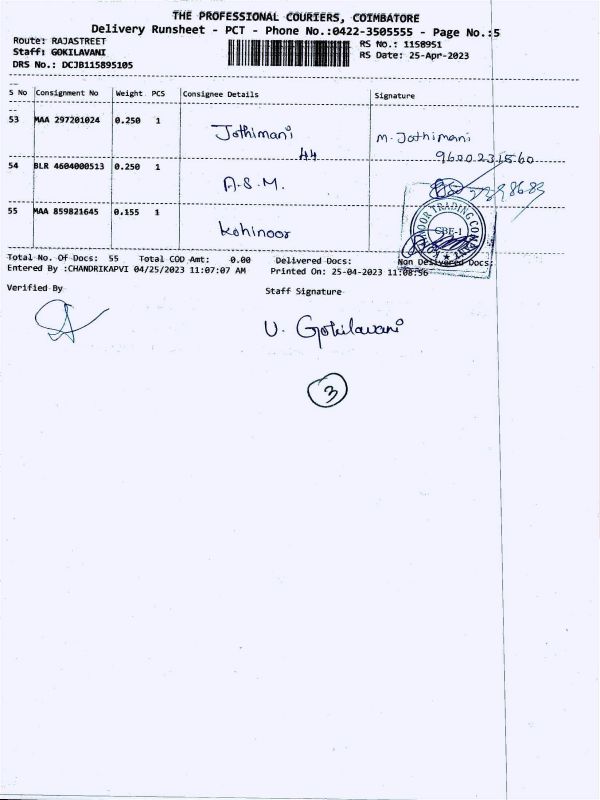 THE PROFESSIONAL COURIERS, COIMBATORE
Delivery Runsheet - PCT - Phone No.:0422-3505555 - Page No.:5
Route: RAJASTREET
RS No.: 1158951
Staff: GOKILAVANI
RS Date: 25-Apr-2023
DRS No.: DCJB115895105
S No Consignment No Weight PCS Consignee Details Signature
53 MAA 297201024 0.250 1 Jothimani M. Jothimani
44 9600231560
54 BLR 4604000513 0.250 1 A.S.M.
55 MAA 859821645 0.155 1 Kohinoor
KOHINOOR TRADING COMPANY
CBE-1
Total No. Of Docs: 55 Total COD Amt: 0.00 Delivered Docs: Non Delivered Docs:
Entered By :CHANDRIKAPVI 04/25/2023 11:07:07 AM Printed On: 25-04-2023 11:08:56
Verified By Staff Signature
U. Gokilavani
3